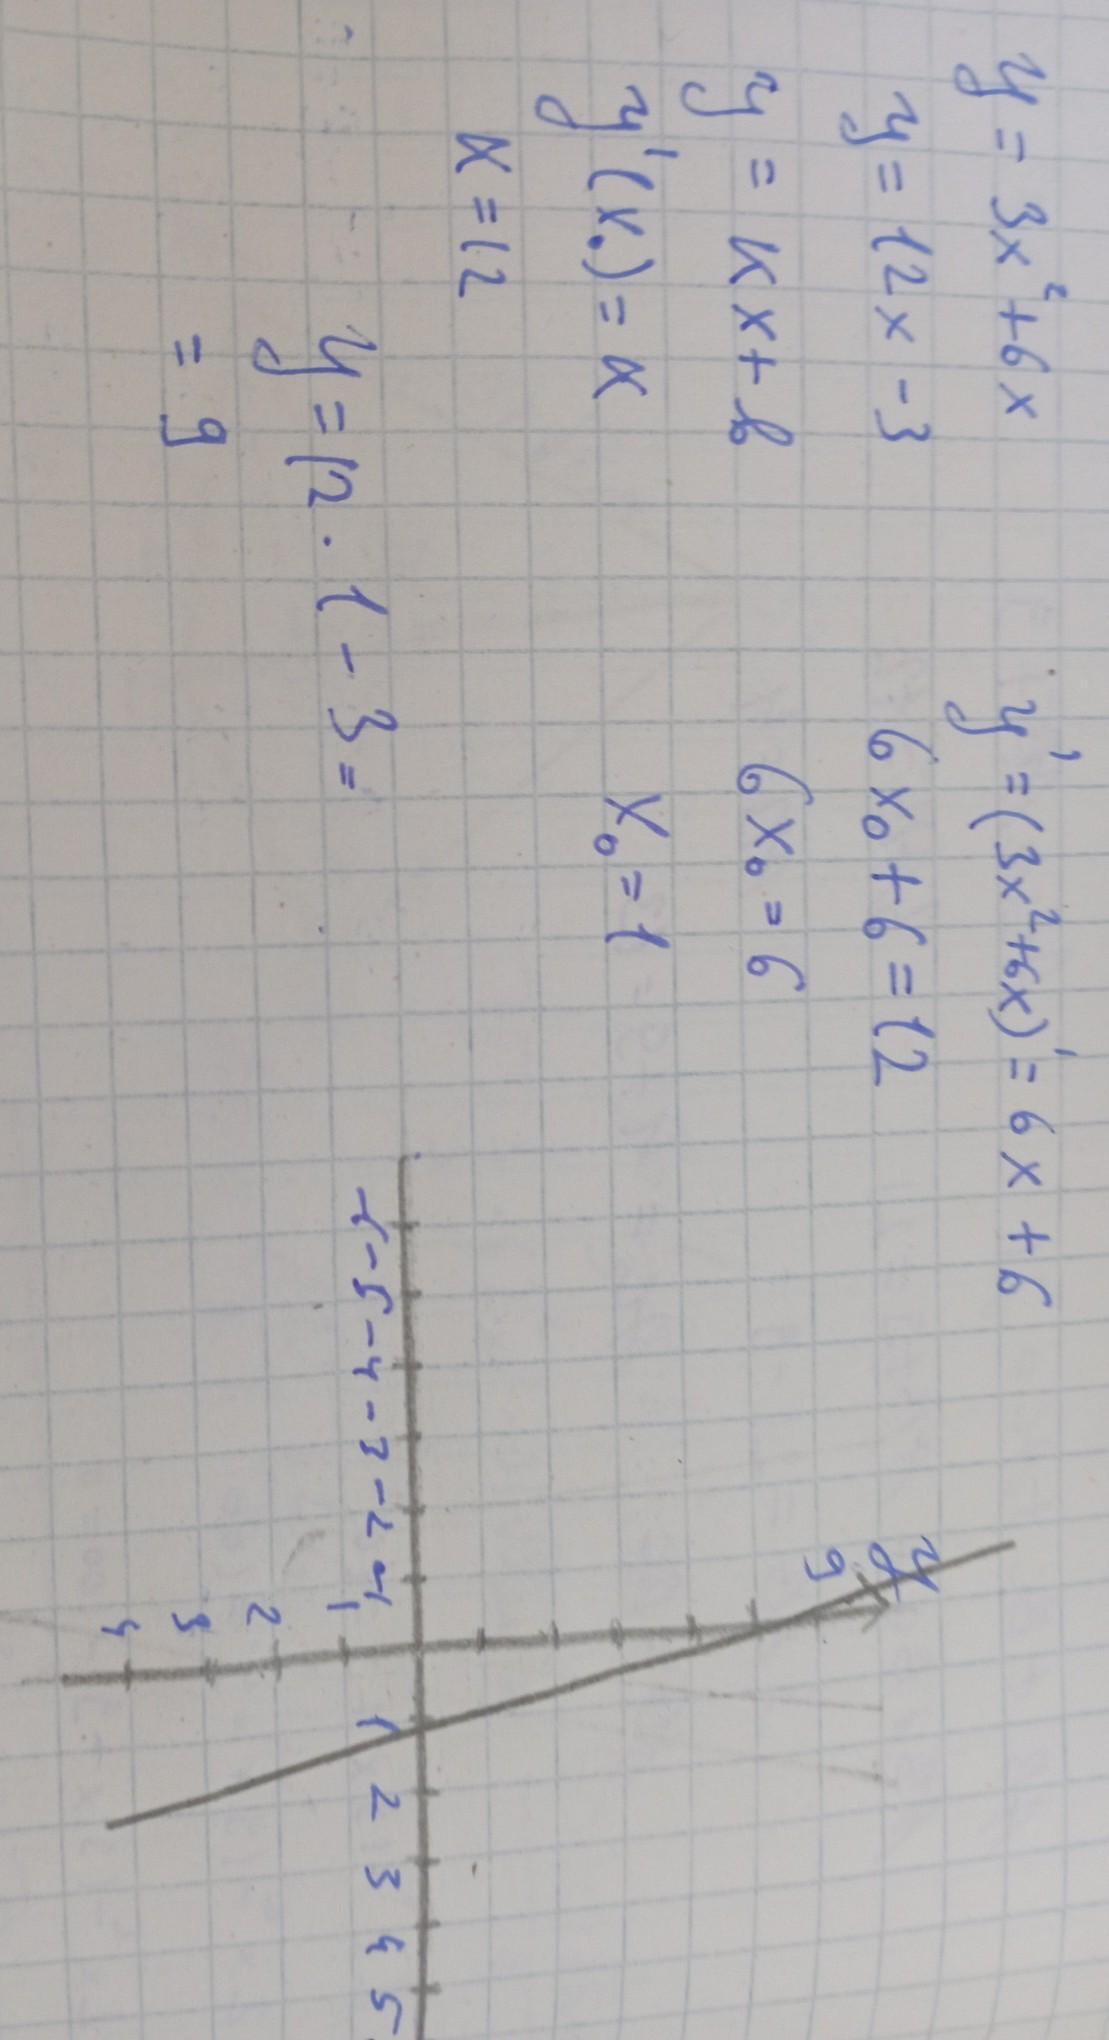 y = 3x² + 6x
y = 12x - 3
y = kx + b
y'(x₀) = k
k = 12
y = 12 · 1 - 3 =
= 9
y' = (3x² + 6x)' = 6x + 6
6x₀ + 6 = 12
6x₀ = 6
x₀ = 1
y
9
-5 -4 -3 -2 -1 1 2 3 4 5
1
2
3
4